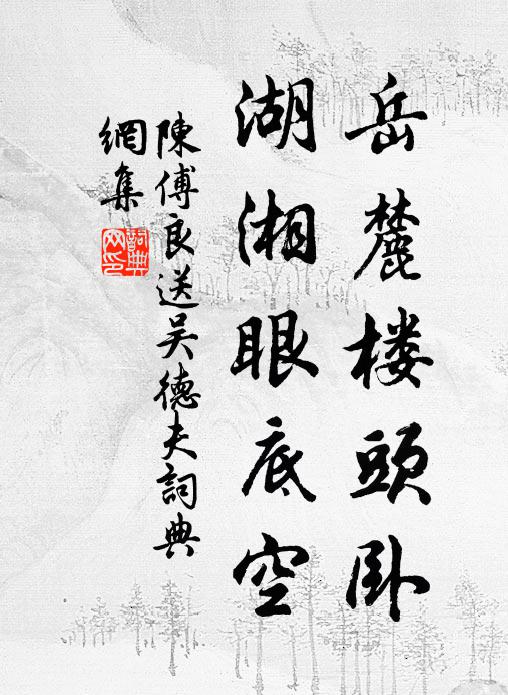 岳麓楼頭卧
湖湘眼底空
陳傅良送吴德夫詞典
網集
詞典网印